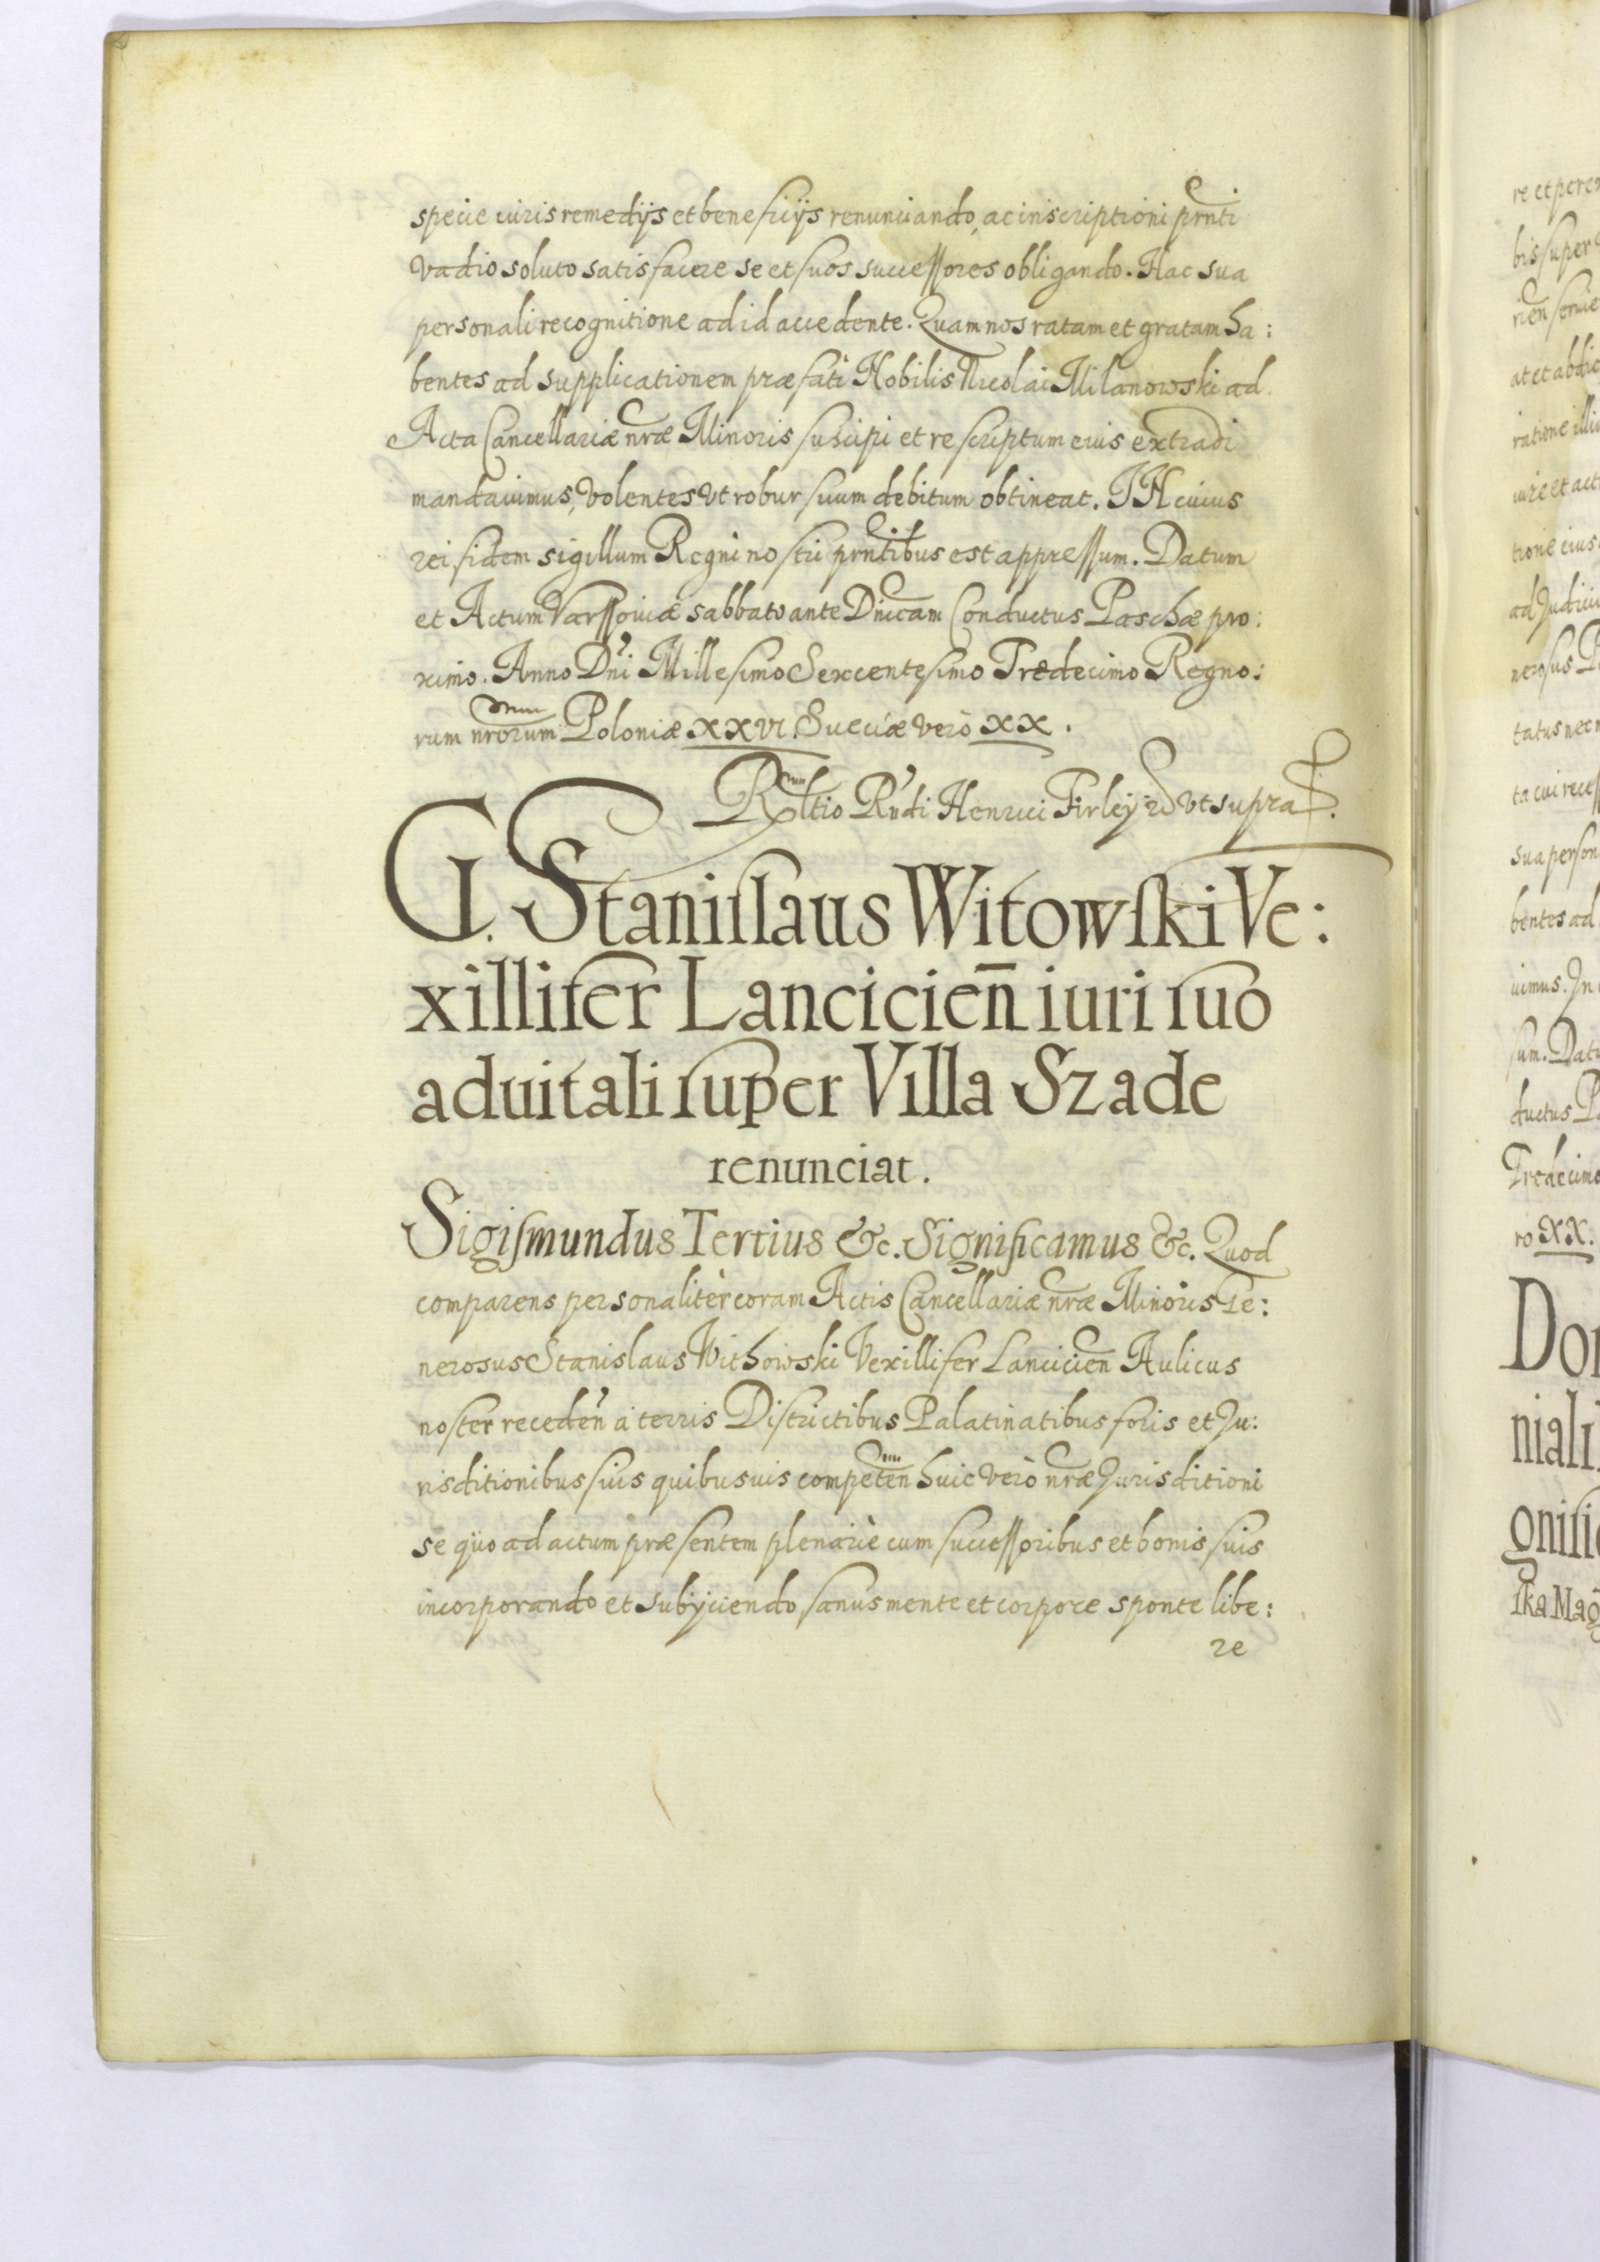 specie iuris remedijs et beneficijs renunciando, ac inscriptioni prnti
vadio soluto satisfacere se et suos successores obligando. Hac sua
personali recognitione ad id accedente. Quam nos ratam et gratam ha:
bentes ad supplicationem præfati Nobilis Nicolai Milanowski ad
Acta Cancellariæ nræ Minoris suscipi et rescriptum eius extradi
mandavimus, volentes ut robur suum debitum obtineat. IN cuius
rei fidem sigillum Regni nostri prntibus est appressum. Datum
et Actum Varssoviæ sabbato ante Dnicam Conductus Paschæ pro:
ximo. Anno Dni Millesimo Sexcentesimo Tredecimo Regno:
rum nrorum Poloniæ XXVI. Sueciæ vero XX.
Rltio Rndi Henrici Firley &c ut supra
G. Stanislaus Witowski Ve:
xillifer Lancicien iuri suo
advitali super Villa Szade
renunciat.
Sigismundus Tertius &c. Significamus &c. Quod
comparens personaliter coram Actis Cancellariæ nræ Minoris Ge:
nerosus Stanislaus Withowski Vexillifer Lancicien Aulicus
noster receden à terris Districtibus Palatinatibus foris et Ju:
risditionibus suis quibusuis competen huic verò nræ Jurisditioni
se quo ad actum præsentem plenariè cum successoribus et bonis suis
incorporando et subijciendo, sanus mente et corpore sponte libe:
re
re et per
bis super
rien servie
at et abdic
ratione illi
iure et act
tione eius
ad Judici
nerosus P
tatus nec n
ta cui recess
sua person
bentes ad
vimus. In
sum. Datu
ductus P
Tredecimo
ro XX.
Do
niali
gnifi
ska Mag